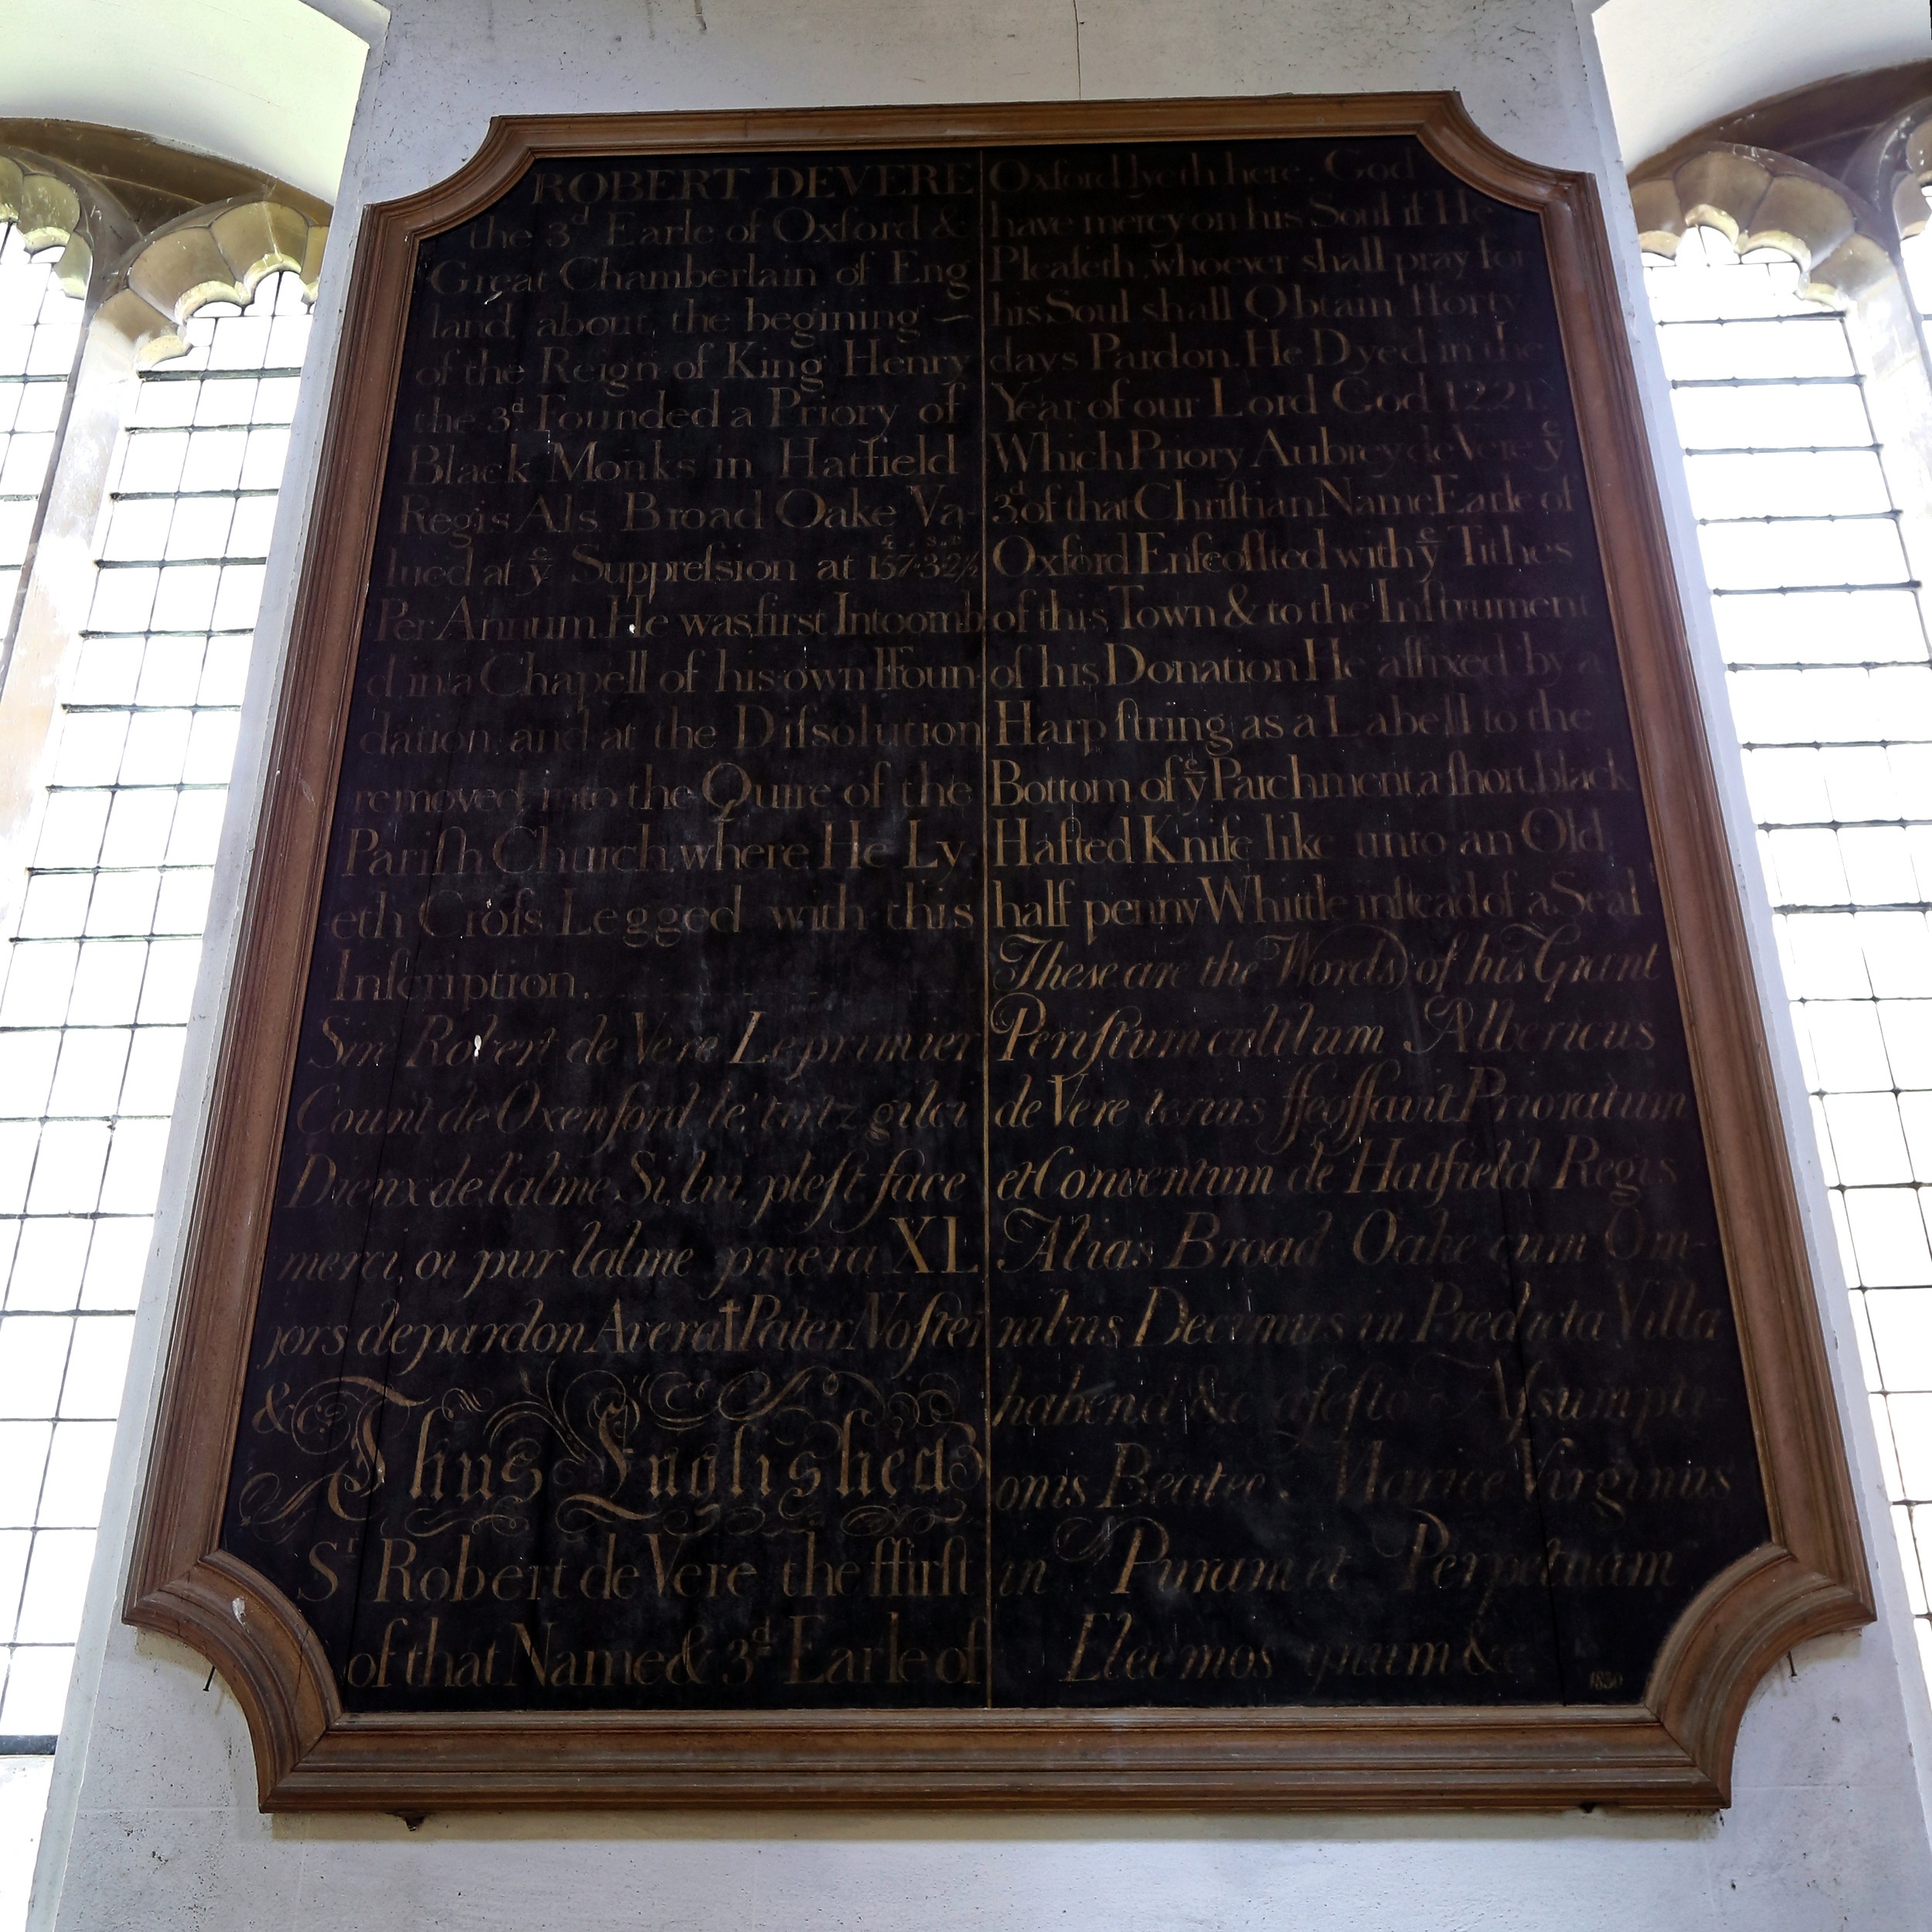 ROBERT DEVERE
the 3d Earle of Oxford &
Great Chamberlain of Eng
land, about the begining ~
of the Reign of King Henry
the 3d Founded a Priory of
Black Monks in Hatfield
Regis Als Broad Oake Va-
lued at ye Suppreſsion at 157·3·2½
Per Annum He was first Intoomb
d in a Chapell of his own Ffoun-
dation, and at the Diſsolution
removed into the Quire of the
Pariſh Church where He Ly
eth Croſs Legged with this
Inſcription.
Sire Robert de Vere Leprimier
Count de Oxenſord le, tirtz gilci
Dienx de l'alme Si, lui, pleſt face
merci, oi pur lalme priera XL
jors de pardon Avera † Pater Noſter
&c Thus Englished
Sr Robert de Vere the ffirſt
of that Name & 3d Earle of
Oxford lyeth here. God
have mercy on his Soul if He
Pleaſeth, whoever shall pray for
his Soul shall Obtain fforty
days Pardon. He Dyed in the
Year of our Lord God 1221.
Which Priory Aubrey de Vere ye
3d of that Chriſtian Name Earle of
Oxford Enfeoffted with ye Tithes
of this Town & to the Inſtrument
of his Donation He affixed by a
Harp ſtring as a Labell to the
Bottom of ye Parchment a ſhort black
Hafted Knife like unto an Old
half penny Whittle inſtead of a Seal
These are the Words of his Grant
Per iſtum cultlum Albericus
de Vere terius ffeoffavit Prioratum
et Conventum de Hatfield Regis
Alias Broad Oake cum Om-
nibus Decimus in Predicta Villa
habend &c afeſto Aſsumpti-
onis Beatee Mariee Virginus
in Puram et Perpetuam
Eleemos ynam &c
1850